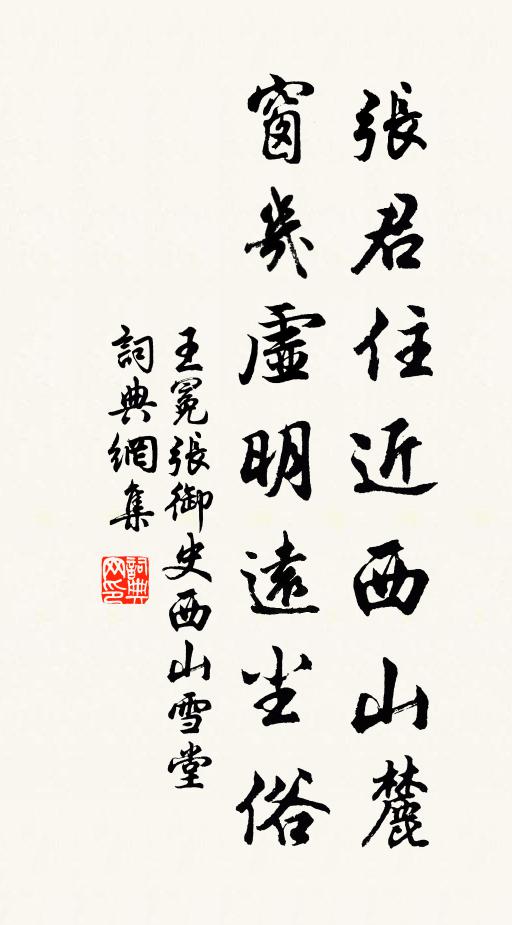 張君住近西山麓
窗幾虛明遠尘俗
王冕張御史西山雪堂
詞典網集
詞典网印